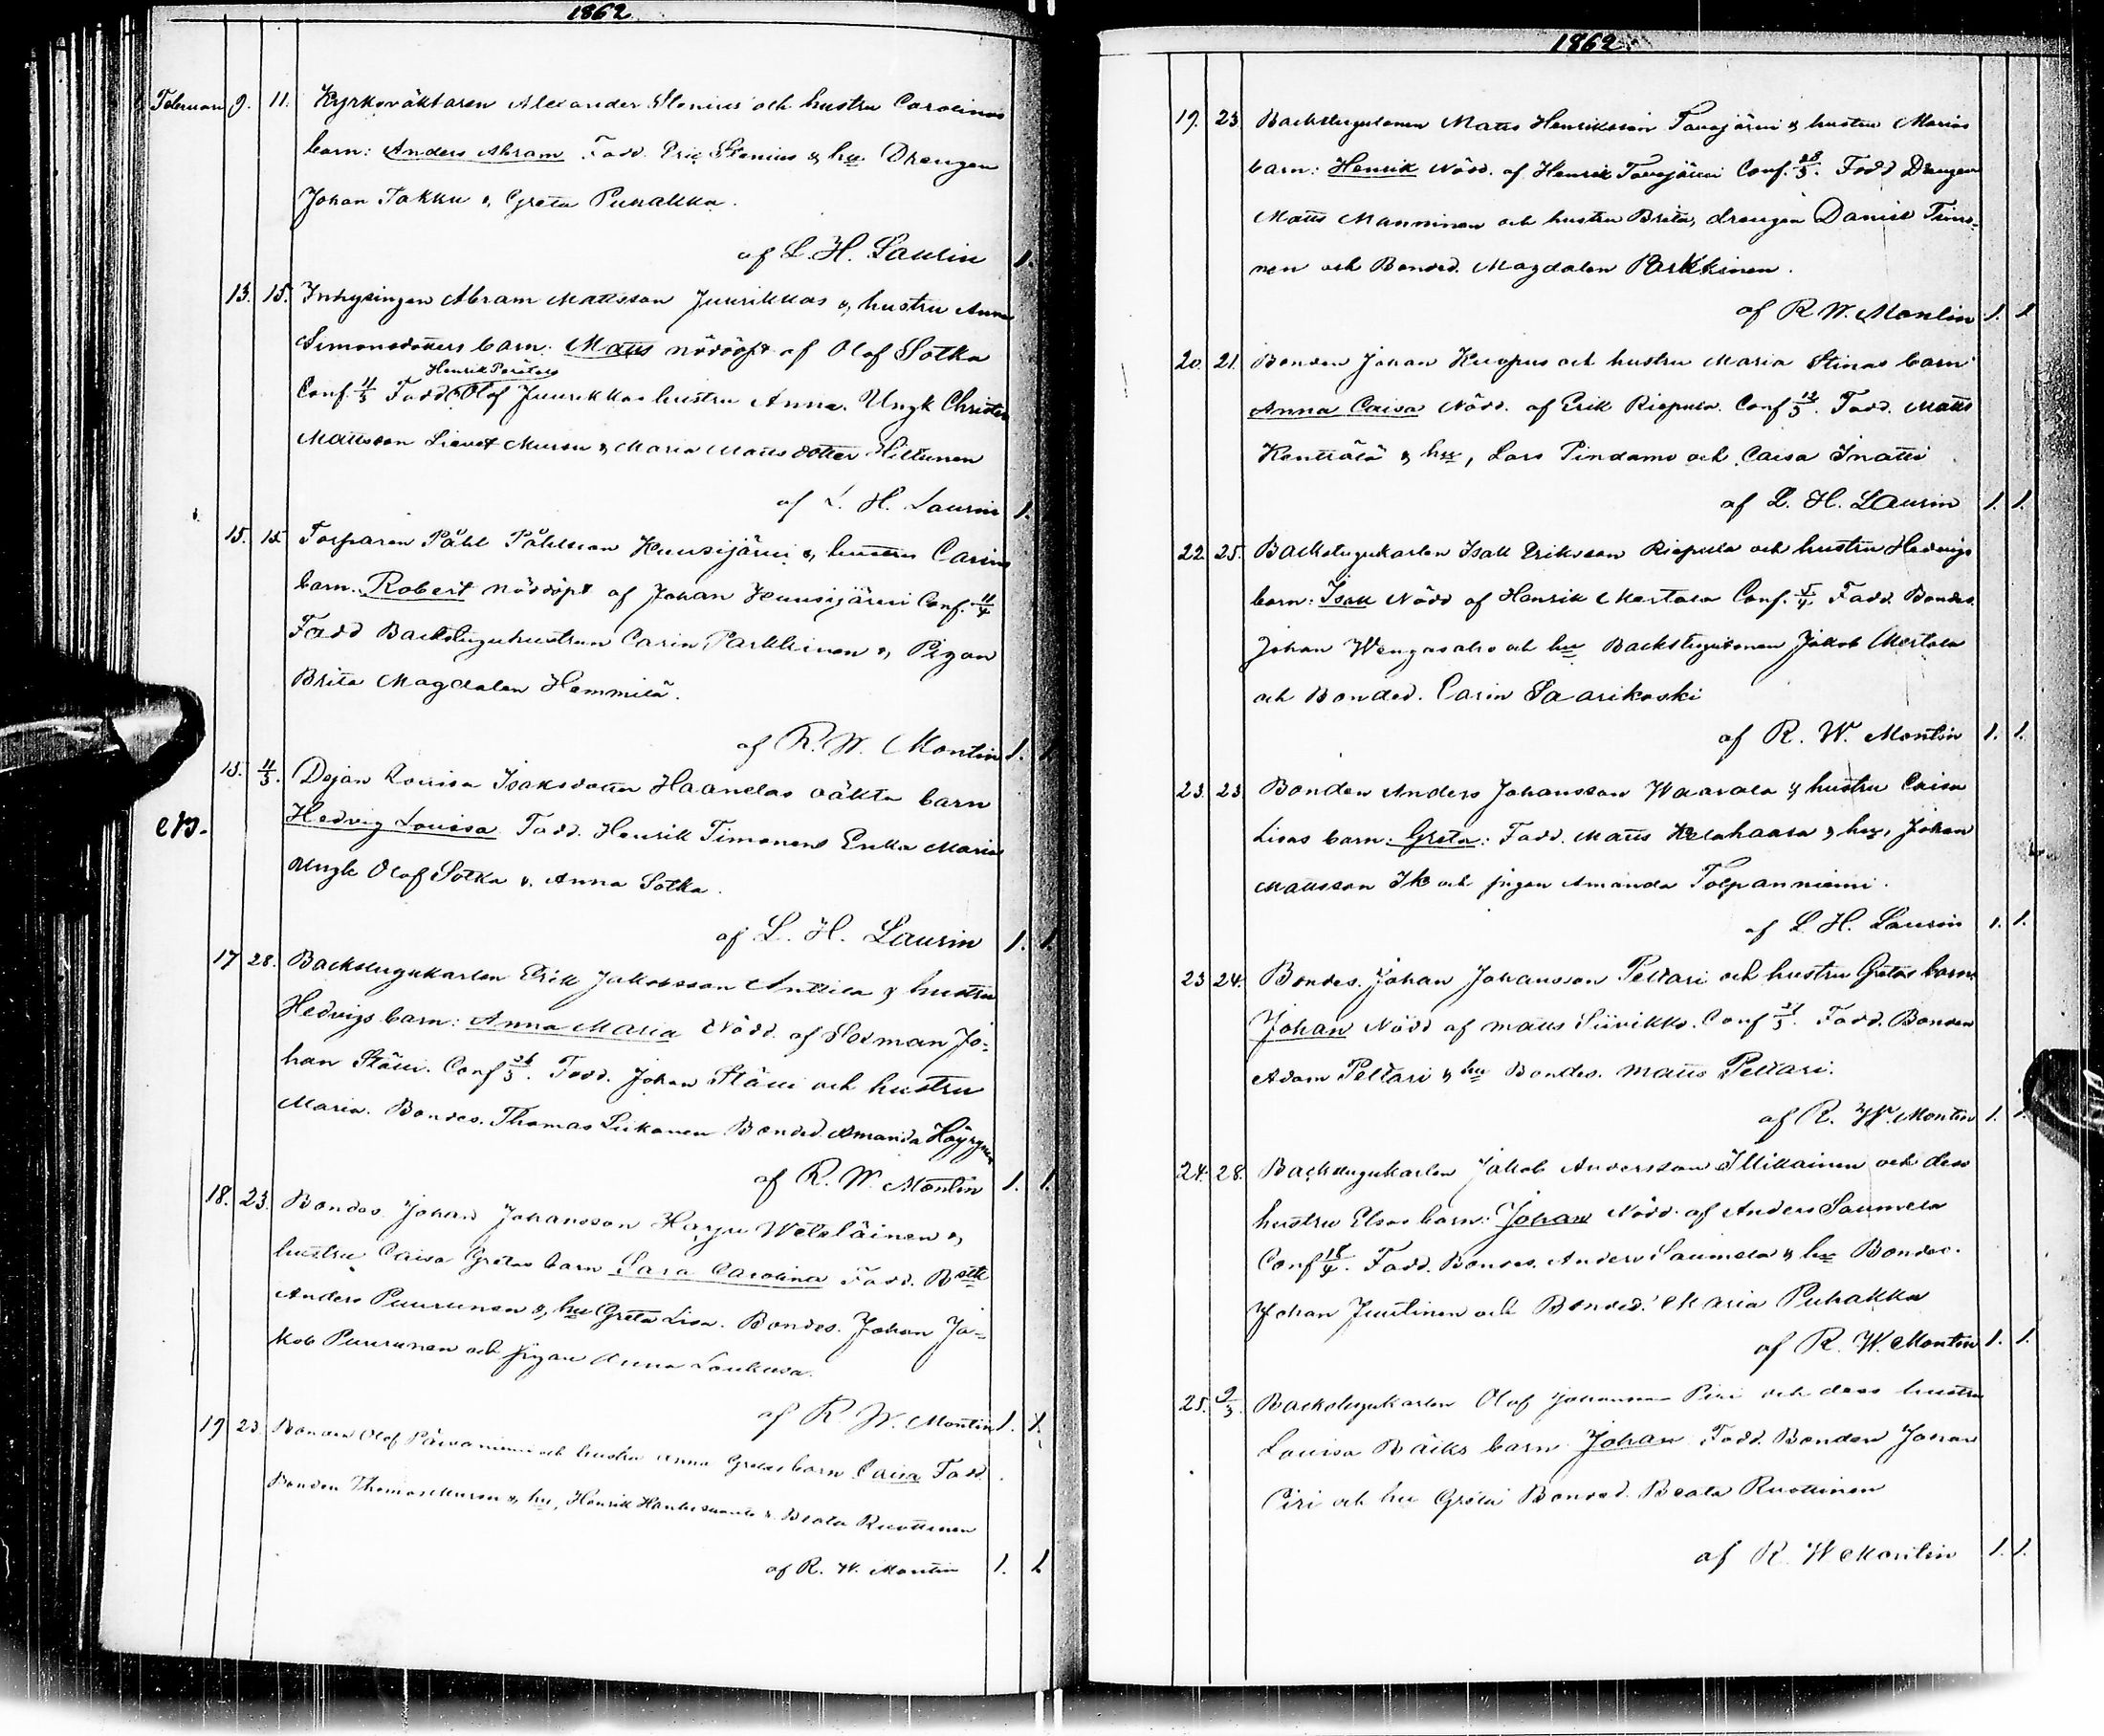 1862
Februari 9. 11. Kyrkoväktaren Alexander Stenius och hustru Carolinas
barn: Anders Abram Fadd. Eric Stenius & hu Drengen
Johan Takku & Greta Puhakka.
af L. H. Laurin 1.
13. 15. Inhysingen Abram Mattsson Juurikkas & hustru Anna
Simonsdotters barn: Matts nöddöpt af Olof Sotka
Henrik
Conf. 11/3 Fadd. Olof Juurikka hustru Anna. Ungk Christer
Mattsson Muisu & Maria Mattsdotter Hiltunen
af L. H. Laurin 1.
15. 15 Torparen Påhl Påhlsson Kuusijärvi & hustru Carins
barn. Robert nöddöpt af Johan Kuusijärvi Conf. 11/4
Fadd Backstuguhustrun Carin Parkkinen & Pigan
Brita Magdalen Hemmilä.
af R. W. Montin 1. 1.
15. 11/3. Dejan Lovisa Isaksdotter Haanelas oäkta barn
Hedvig Lovisa Fadd. Henrik Timonen Erika Maria
Ungk Olof Sotka & Anna Sotka.
af L. H. Laurin 1. 1.
17 28. Backstugukarlen Erik Jakobsson Anttila & hustru
Hedvigs barn: Anna Maria Nödd. af Sexman Jo-
han Ståui. Conf. 26/3. Fadd. Johan Ståui och hustru
Maria. Bondes. Thomas Liikanen Bonded. Amanda Höyrynen
af R. W. Montin 1. 1.
18. 23. Bondes Johan Johansson Harju Weteläinen &
hustru Caisa Gretas barn Sara Carolina Fadd. Bstk
Anders Puurunen & hu Greta Lisa. Bondes. Johan Ja-
kob Puurunen och pigan Anna Loukusa.
af R. W. Montin 1. 1.
19 23 Bonden Olof Päivaniemi och hustru Anna Gretas barn Caisa Fadd.
Bonden Thomas Mursu & hu, Henrik & Beata Ruottinen
af R. W. Montin 1. 1
1862
19. 23 Backstugusonen Matts Henriksson Tavajärvi & hustru Marias
barn: Henrik Nödd. af Henrik Tavajärvi Conf. 28/3. Fadd Drengen
Matts Manninen och hustru Brita, drengen Daniel Timo-
nen och Bonded. Magdalen Parkkinen.
af R. W. Montin 1. 1
20. 21. Bonden Johan Kuopus och hustru Maria Stinas barn
Anna Caisa Nödd. af Erik Riepula. Conf 12/3. Fadd. Matts
Kenttälä & hu, Lars Pindamo och Caisa Inatti
af L. H. Laurin 1. 1.
22. 25. Backstugukarlen Isak Eriksson Riepula och hustru Hedvigs
barn: Isak Nödd af Henrik Mertala Conf. 5/4. Fadd. Bondes.
Johan Wengasaho och hu Backstugusonen Jakob Mertala
och Bonded. Carin Saarikoski
af R. W. Montin 1. 1.
23. 23 Bonden Anders Johansson Waarala & hustru Caisa
Lisas barn: Greta: Fadd. Matts Kelahaara & hu, Johan
Mattsson Ik och pigan Amanda Tolpanniemi.
af L. H. Laurin 1. 1.
23 24. Bondes. Johan Johansson Peltari och hustru Gretas barn
Johan Nödd af Matts Siivikko. Conf 27/3. Fadd. Bonden
Adam Peltari & hu Bondes. Matts Peltari.
af R. W. Montin 1. 1.
24. 28. Backstugukarlen Jakob Andersson Illikainen och dess
hustru Elsas barn: Johan Nödd. af Anders Saumela
Conf 18/4. Fadd. Bondes. Anders Saumela & hu Bondes.
Johan Juutinen och Bonded. Maria Puhakka
af R. W. Montin 1. 1.
25. 9/3. Backstugukarlen Olof Johansson Piri och dess hustru
Lovisa Räiks barn Johan Fadd. Bonden Johan
Piri och hu Greta Bonded. Beata Ruottinen
af R W Montin 1. 1.